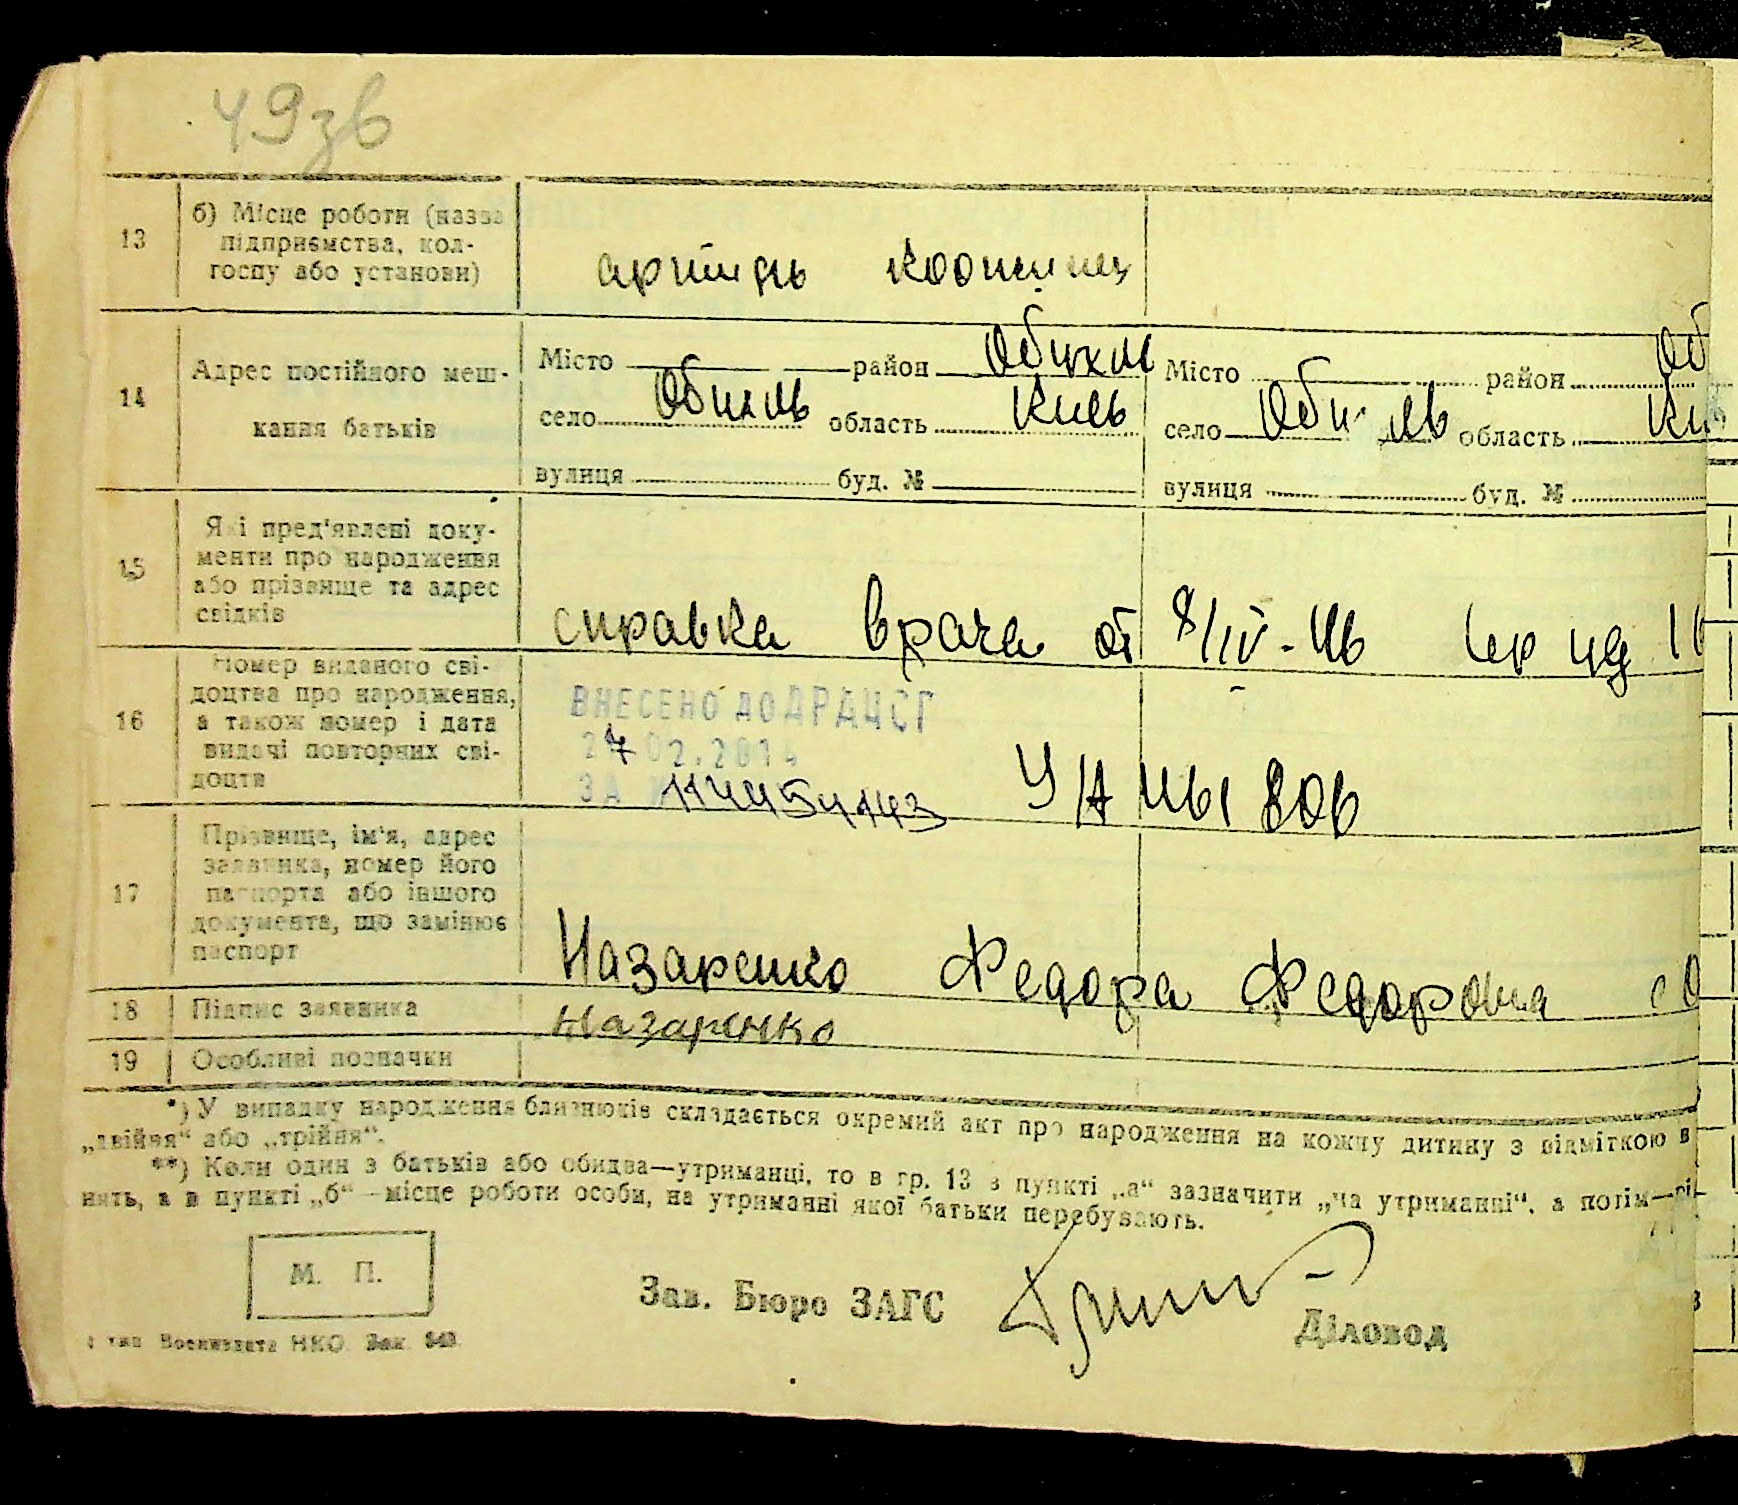 49зв
13
б) Місце роботи (назва
підприємства, кол-
госпу або установи)
артиль
14
Адрес постійного меш-
кання батьків
Місто район
село область Киев
вулиця буд. №
Місто район Об
село область Ки
вулиця буд. №
15
Які пред'явлені доку-
менти про народження
або прізвище та адрес
свідків
справка врача от 8/IV-46
16
Номер виданого сві-
доцтва про народження,
а також номер і дата
видачі повторних сві-
доцтв
ВНЕСЕНО ДО ДРАЦСГ
ЗА
17
Прізвище, ім'я, адрес
заявника, номер його
паспорта або іншого
документа, що замінює
паспорт
Назаренко Федора Федоровна
18
Підпис заявника
Назаренко
19
Особливі позначки
*) У випадку народження близнюків складається окремий акт про народження на кожну дитину з відміткою в
„двійня“ або „трійня“.
**) Коли один з батьків або обидва—утриманці, то в гр. 13 в пункті „а“ зазначити „на утриманні“, а потім—
нять, а в пункті „б“ —місце роботи особи, на утриманні якої батьки перебувають.
М. П.
Зав. Бюро ЗАГС
Діловод
тип Воениздата НКО Зак